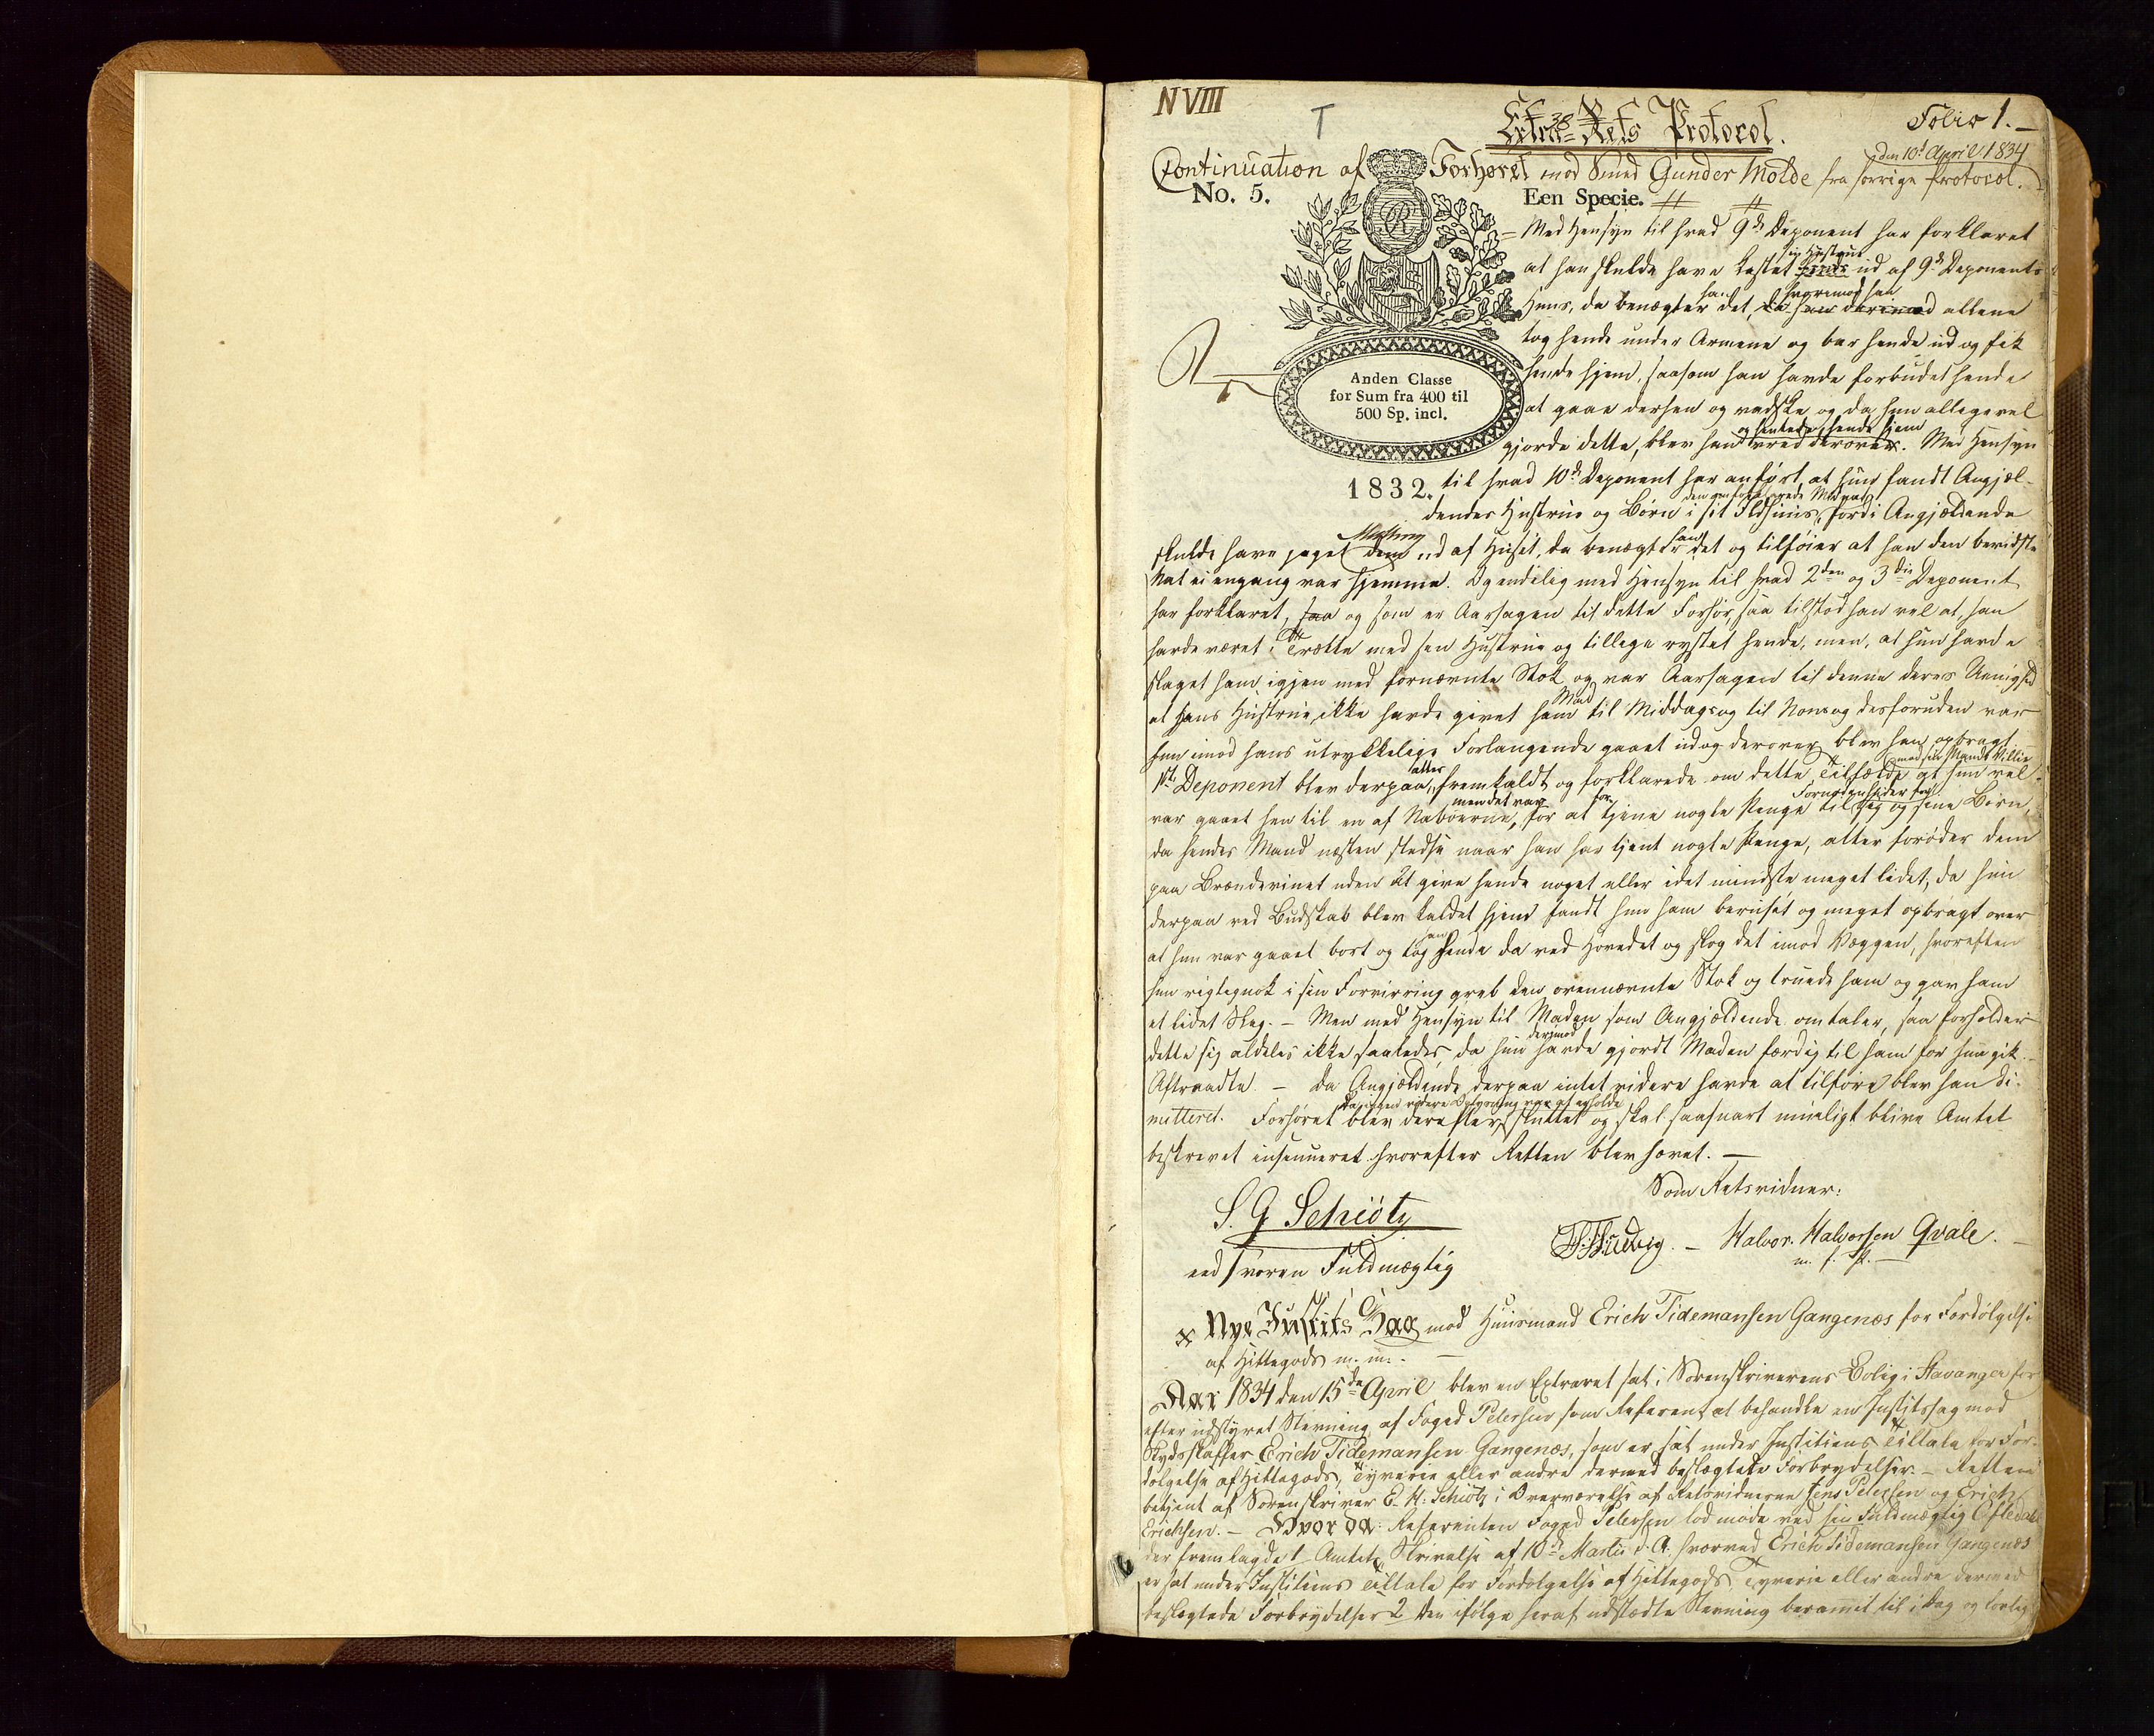 N VIII
T
38
Extra-Rets Protocol.
Folio 1.
den 10d April 1834
Continuation af Forhøret mod Smed Gunder Molde fra forrige Protocol.
No. 5.
Een Specie.
Med Hensyn til hvad 9de Deponent har forklaret
sin Hustrue
at han skulde have kastet ud af 9de Deponents
han hvorimod han
Huus, da benægter det, da han derimod allene
tog hende under Armene og bar hende ud og fik
hende hjem, saasom han havde forbudet hende
at gaae derhen og vadske og da hun allegevel
og hentede hende hjem
gjorde dette, blev han vred derover. Med Hensyn
Anden Classe
for Sum fra 400 til
500 Sp. incl.
1832.
til hvad 10de Deponent har anført, at hun fandt Angjæl-
dendes Hustrue og Børn i sit Ildhuus, fordi Angjældende
skulde have jaget dem ud af Huset, da benægter han det og tilføier at han den bevidste
Nat ei engang var hjemme. Og endelig med Hensyn til hvad 2den og 3die Deponent
har forklaret, saa og som er Aarsagen til dette Forhør, saa tilstod han vel at han
havde været i Trætte med sin Hustrue og tillige rystet hende, men, at hun havde
slaget ham igjen med fornævnte Stok og var Aarsagen til denne deres Uenighed
Mad
at hans Hustrue ikke havde givet ham til Middag og til Non og desforuden var
hun imod hans utrykkelige Forlangende gaaet ud og derover blev han opbragt
mod sin Mands Villie
1ste Deponent blev derpaa atter fremkaldt og forklarede om dette Tilfælde at hun vel
men det var for Fornødenheder for
var gaaet hen til en af Naboerne, for at tjene nogle Penge til sig og sine Børn,
da hendes Mand næsten stedse naar han har tjent nogle Penge, atter forøder dem
paa Brændeviinet uden at give hende noget eller idet mindste meget lidet, da hun
derpaa ved Budskab blev kaldet hjem fandt hun ham beruset og meget opbragt over
at hun var gaaet bort og tog han hende da ved Hovedet og slog det imod Væggen, hvorefter
hun rigtignok i sin Forvirring greb den ovennævnte Stok og truede ham og gav ham
et lidet Slag. – Men med Hensyn til Maden som Angjældende omtaler, saa forholder
derimod
dette sig aldeles ikke saaledes da hun havde gjordt Maden færdig til ham før hun gik.
Aftraadte. – Da Angjældende derpaa intet videre havde at tilføre blev han di-
da ingen videre Oplysning var at erholde
mitteret. Forhøret blev derefter sluttet og skal saasnart mueligt blive Amtet
beskrevet insinueret hvorefter Retten blev hævet. –
Som Retsvidner:
S. G. Schiötz
eedsvoren Fuldmægtig
Halvor Halvorsen Qvale.
m. f. P.
Nye Justits Sag mod Huusmand Erich Tidemansen Gangenæs for Fordølgelse
af Hittegods m. m.
Aar 1834 den 15de April blev en Extraret sat i Sorenskriverens Bolig i Stavanger for
efter udstyret Stevning af Foged Petersen som Referent at behandle en Justitssag mod
Skydsskaffer Erich Tidemansen Gangenæs, som er sat under Justitiens Tiltale for For-
dølgelse af Hittegods, Tyverie eller andre dermed beslægtede Forbrydelser. – Retten
betjent af Sorenskriver E. H. Schiötz i Overværelse af Retsvidnerne Jens Petersen og Erich
Erichsen. – Hvor da: Referenten Foged Petersen lod møde ved sin Fuldmægtig Oftedal
der fremlagde 1 Amtets Skrivelse af 10de Martii d. A. hvorved Erich Tidemansen Gangenæs
er sat under Justitiens Tiltale for Fordølgelse af Hittegods Tyverie eller andre dermed
beslægtede Forbrydelser 2 den ifølge heraf udstædte Stevning berammet til i Dag og lovlig